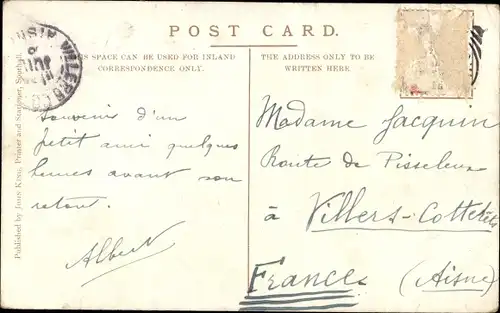 POST CARD.
THIS SPACE CAN BE USED FOR INLAND
CORRESPONDENCE ONLY.
THE ADDRESS ONLY TO BE
WRITTEN HERE
VILLERS-CO
AISN
Souvenir d'un
petit ami quelques
heures avant son
retour.
Albert
Madame Jacquin
Route de Pisseleux
à Villers-Cotterêts
France (Aisne)
Published by John King, Printer and Stationer, Southall.